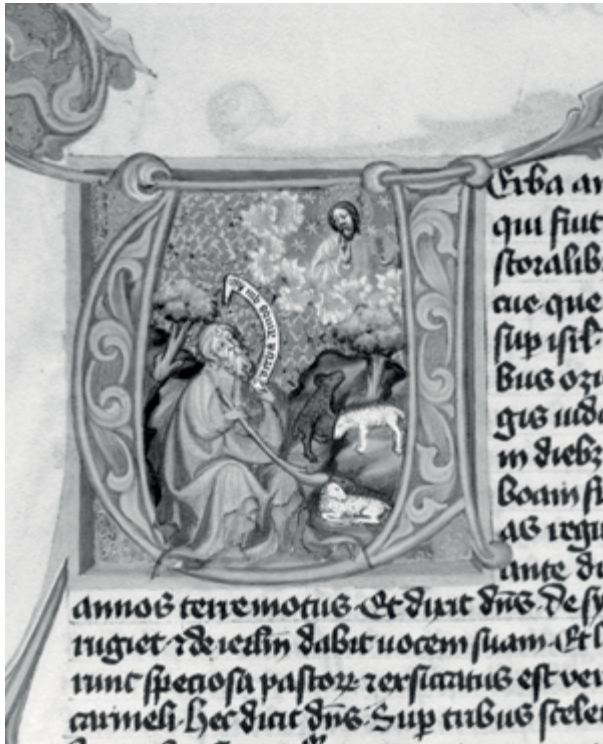 Erba am
qui fiut
storalib
cue que
sup isrl
bus ozi
gis iud
in dieb
boam fi
as regi
ante du
annos terremotus. Et dixit dns. De sy
rugiet & de ierlm dabit uocem suam. Et l
runt speciosa pastorꝝ & exsiccatus est ver
carmeli. Hec dicit dns. Sup tribus sceler